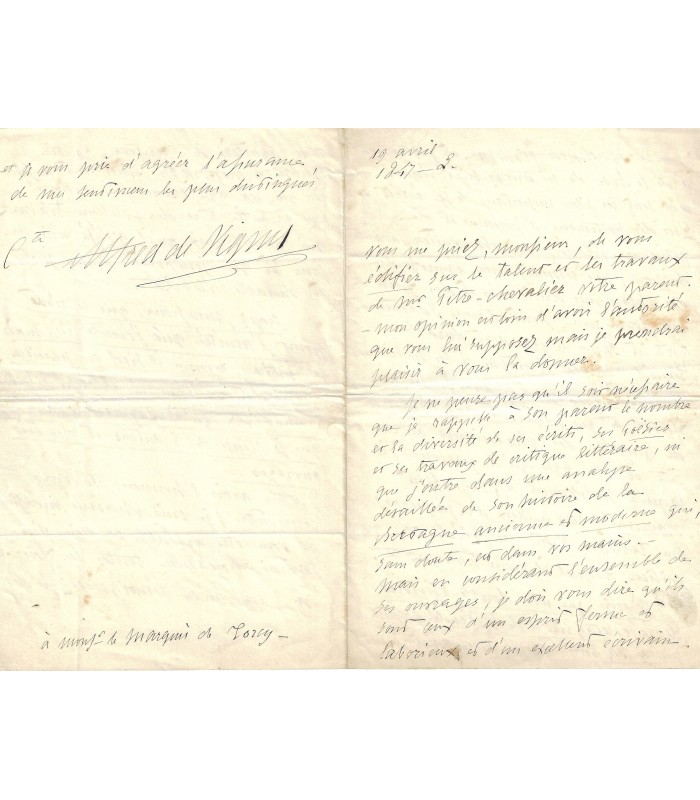 19 avril
1847 _
vous me priez, monsieur, de vous
édifier sur le talent et les travaux
de mr Pitre-chevalier votre parent.
- mon opinion est loin d'avoir l'autorité
que vous lui supposez mais je prendrai
plaisir à vous la donner.
Je ne pense pas qu'il soit nécessaire
que je rappelle à son parent le nombre
et la diversité de ses écrits, ses Poésies
et ses travaux de critique littéraire, ni
que j'entre dans une analyse
détaillée de son histoire de la
Bretagne ancienne et moderne qui,
sans doute, est dans vos mains. -
Mais en considérant l'ensemble de
ses ouvrages, je dois vous dire qu'ils
sont ceux d'un esprit ferme et
laborieux et d'un excellent écrivain.
et je vous prie d'agréer l'assurance
de mes sentimens les plus distingués
Cte Alfred de Vigny
à monsr le Marquis de Torcy -